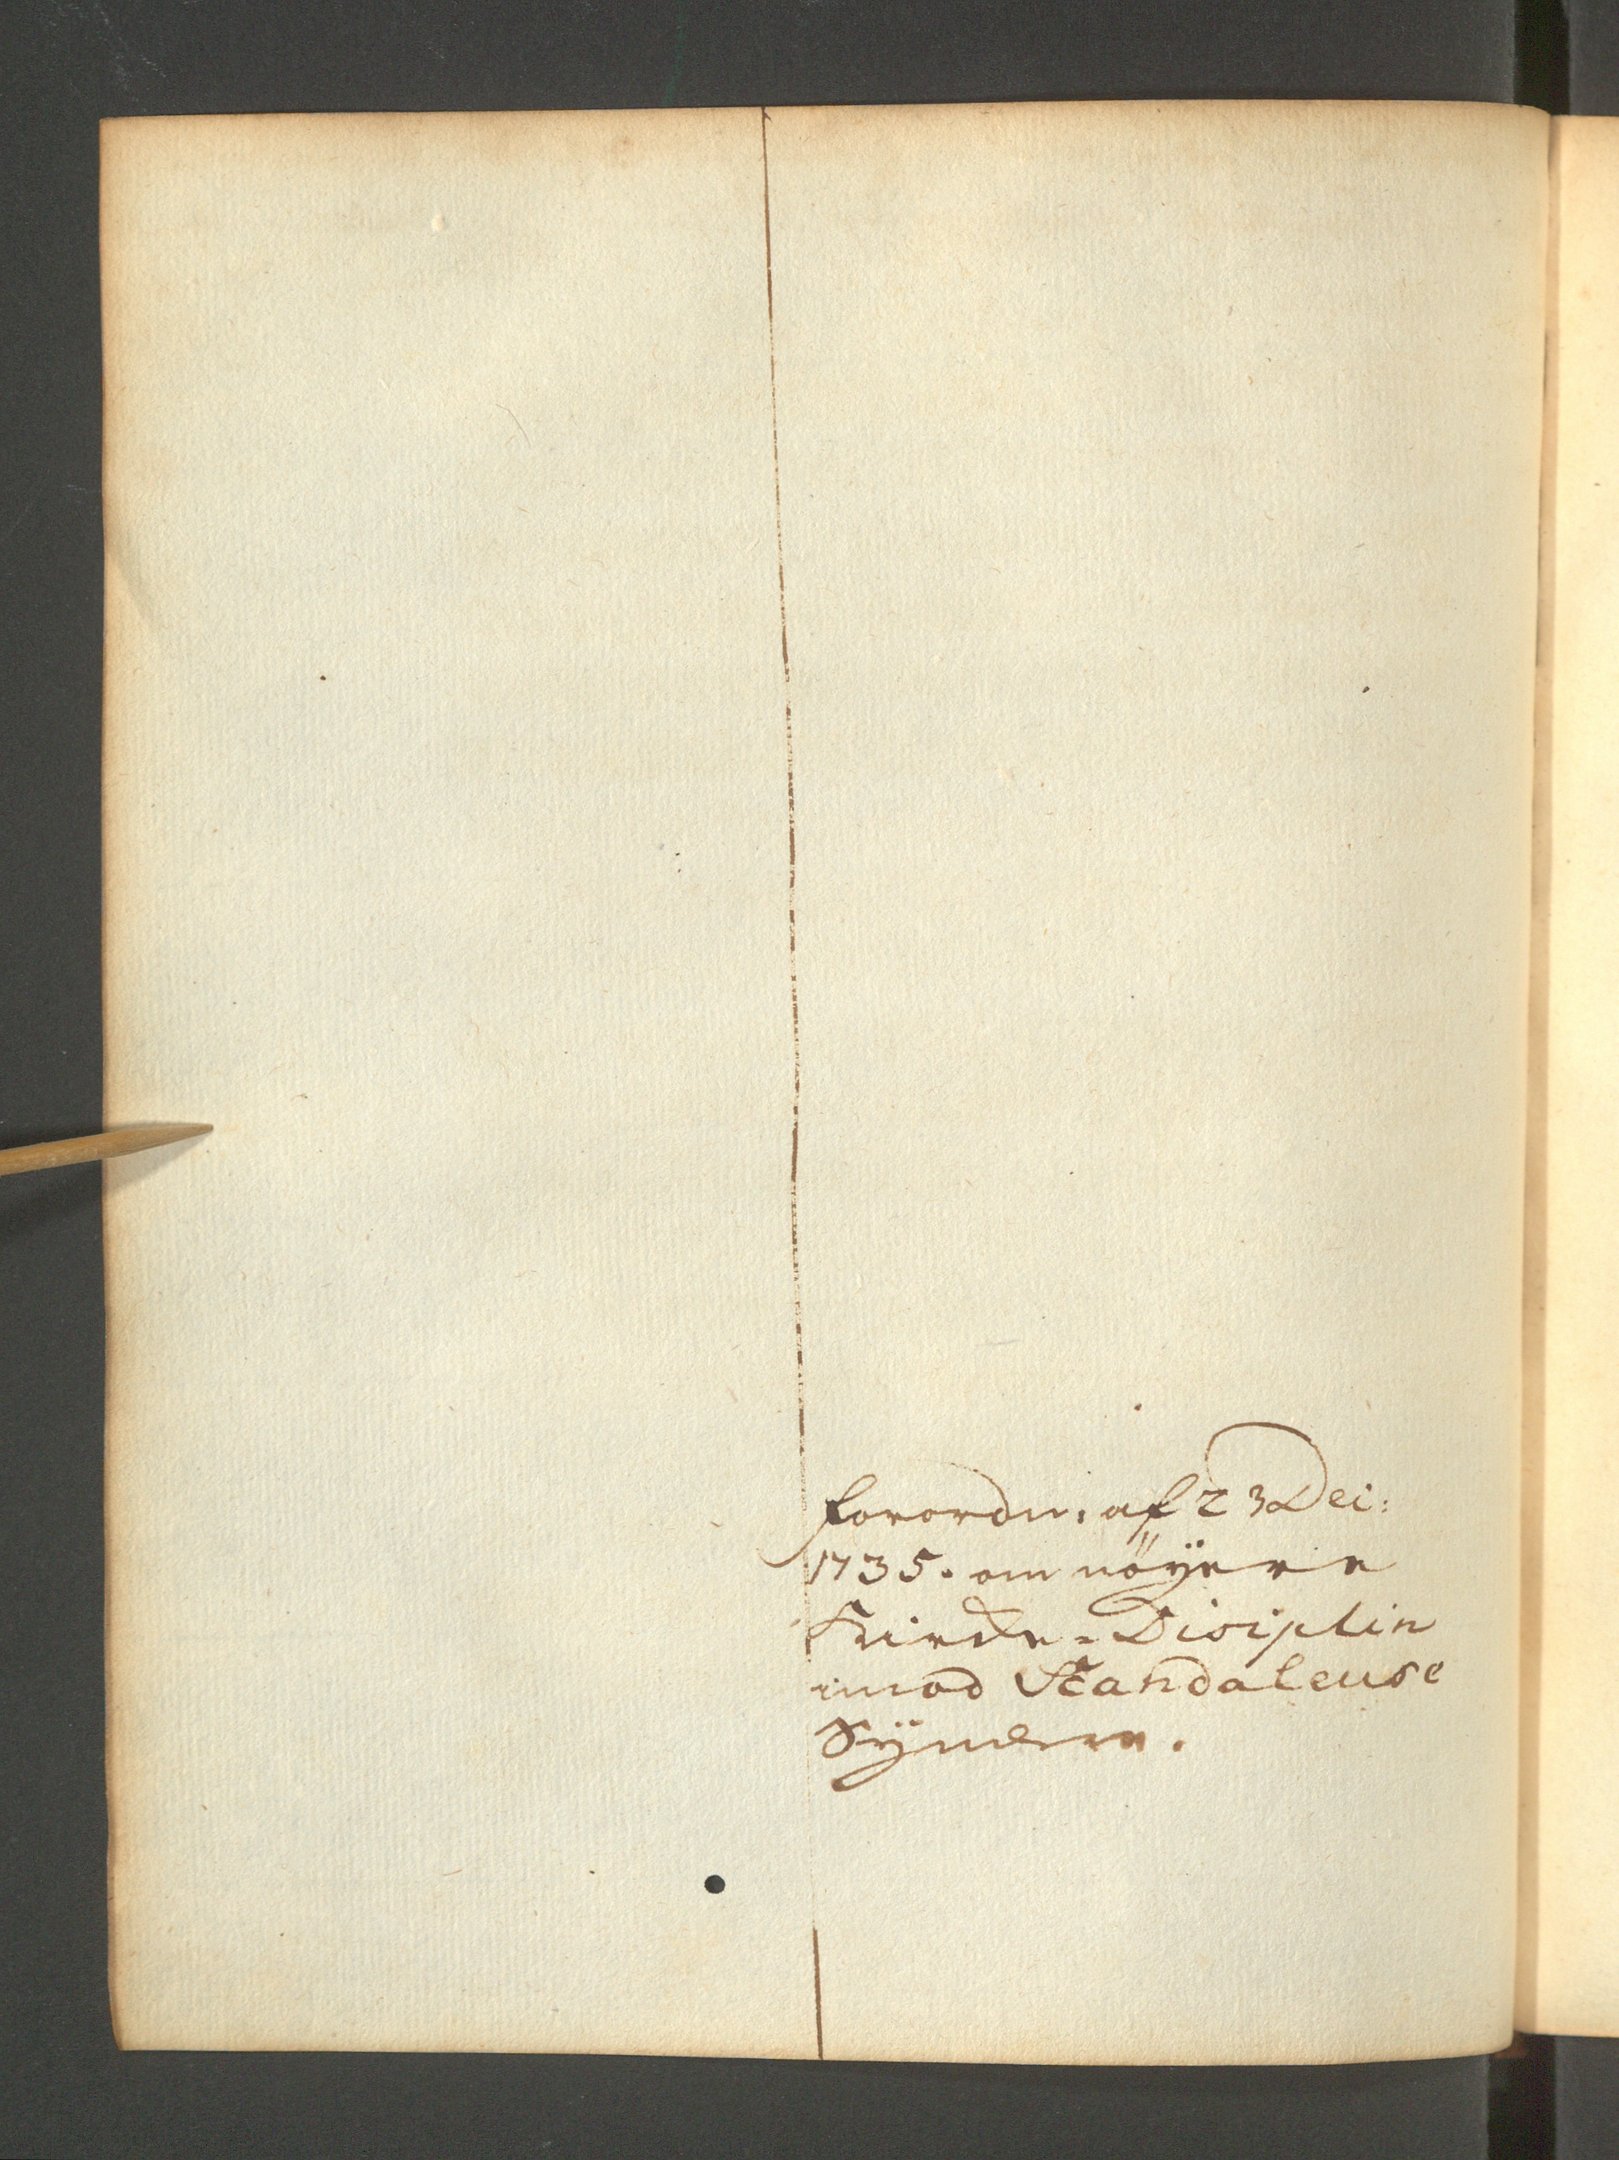 Forordn: af 23 Dec:
1735. om nöÿere
Kircke-Disciplin
imod Scandaleuse
Sÿndere.